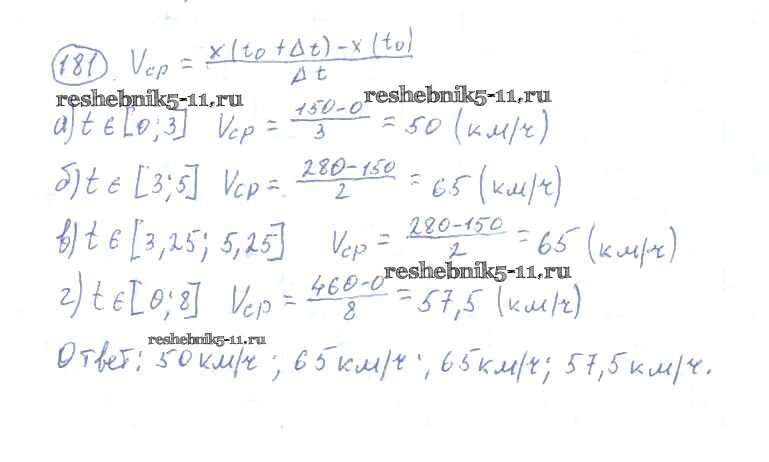 181. Vср = x(t₀ + Δt) - x(t₀) / Δt
reshebnik5-11.ru reshebnik5-11.ru
а) t ∈ [0; 3] Vср = 150-0 / 3 = 50 (км/ч)
б) t ∈ [3; 5] Vср = 280-150 / 2 = 65 (км/ч)
в) t ∈ [3,25; 5,25] Vср = 280-150 / 2 = 65 (км/ч)
reshebnik5-11.ru
г) t ∈ [0; 8] Vср = 460-0 / 8 = 57,5 (км/ч)
reshebnik5-11.ru
Ответ: 50 км/ч; 65 км/ч; 65 км/ч; 57,5 км/ч.